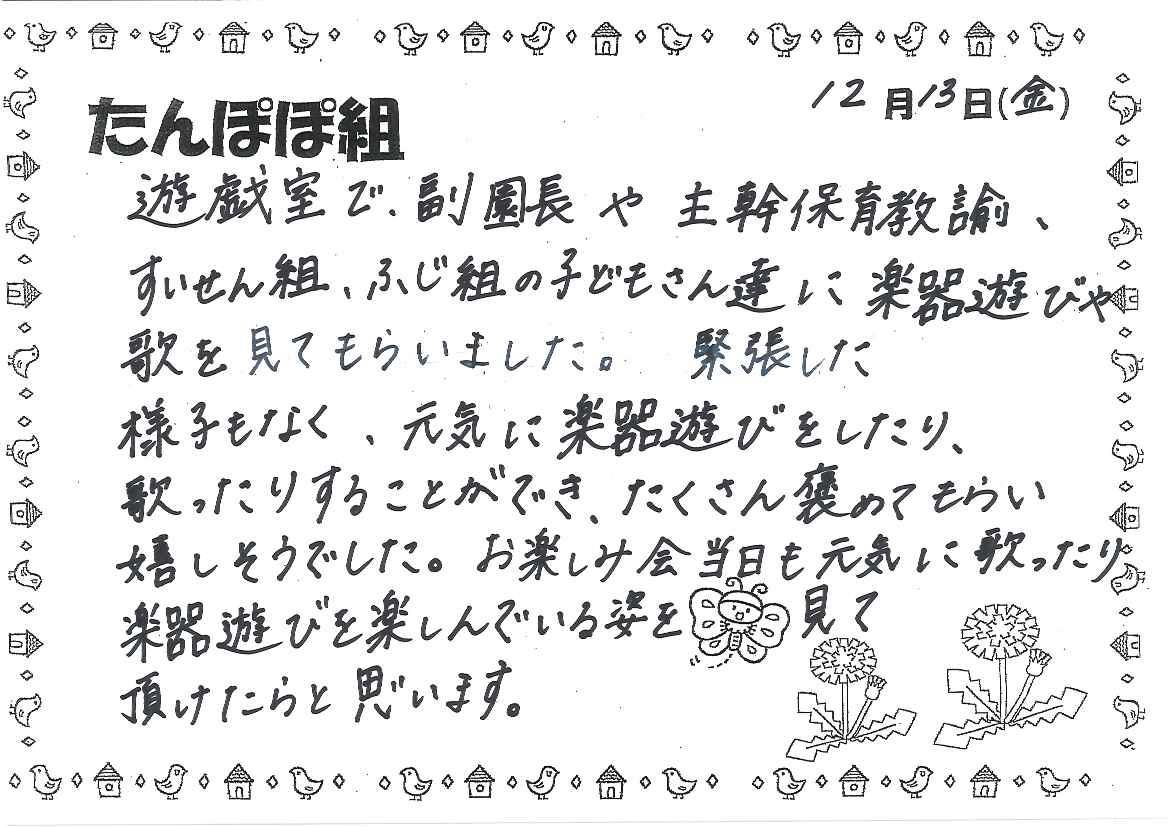 たんぽぽ組
12月13日(金)
遊戯室で、副園長や主幹保育教諭、
すいせん組、ふじ組の子どもさん達に楽器遊びや
歌を見てもらいました。緊張した
様子もなく、元気に楽器遊びをしたり、
歌ったりすることができ、たくさん褒めてもらい
嬉しそうでした。お楽しみ会当日も元気に歌ったり
楽器遊びを楽しんでいる姿を見て
頂けたらと思います。